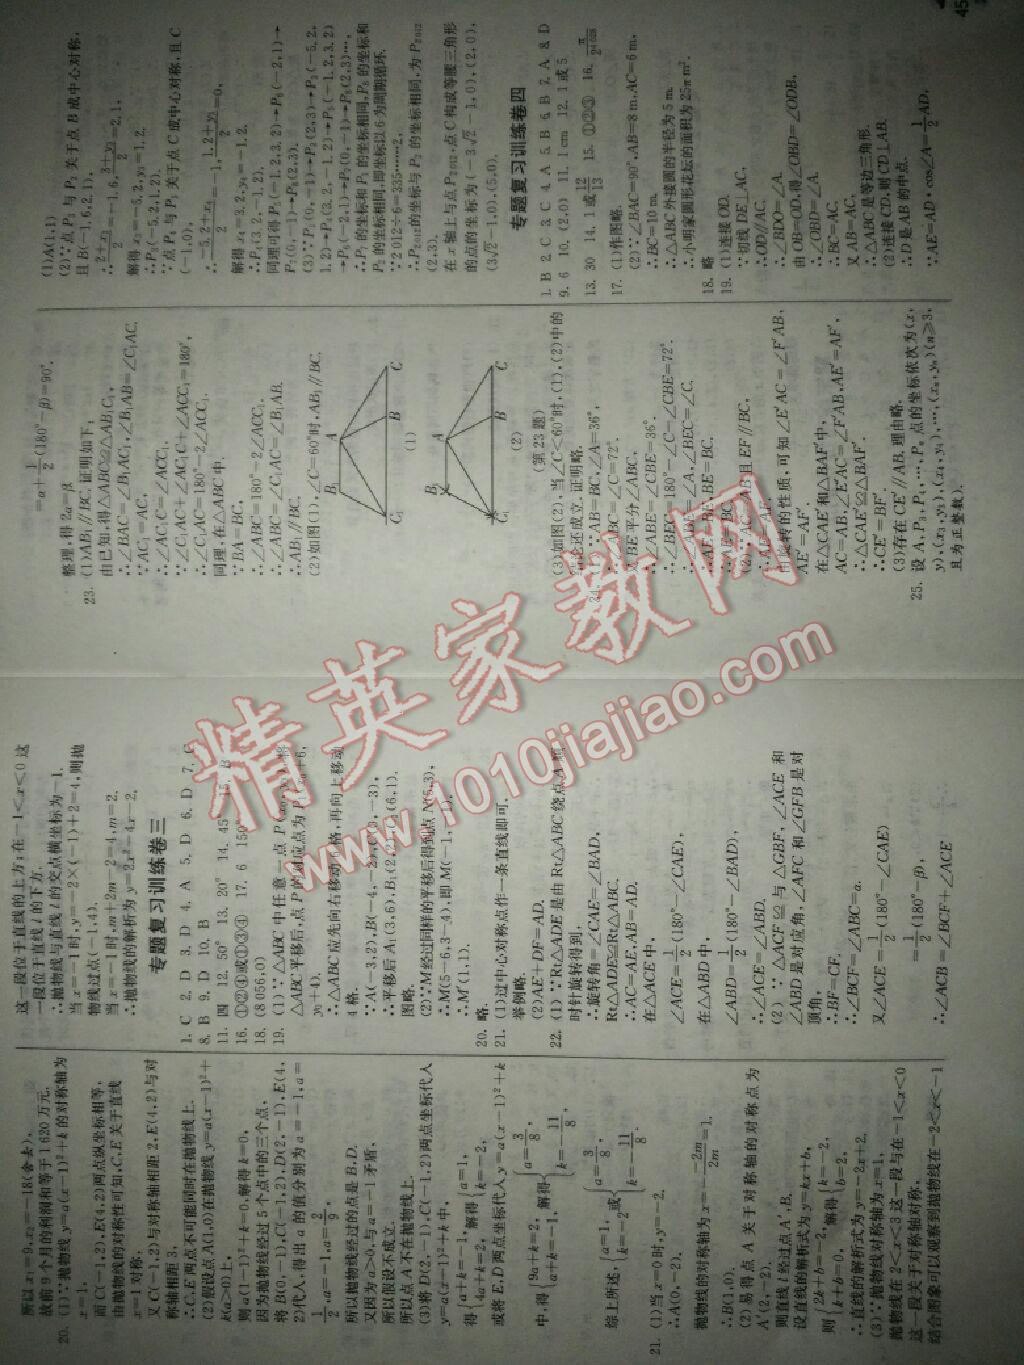 所以 x₁=9,x₂=-18(舍去),
故前 9 个月的利润和等于 1 620 万元.
20. (1)∵抛物线 y=a(x-1)²+k 的对称轴为
x=1,
而 C(-1,2),E(4,2)两点纵坐标相等,
由抛物线的对称性可知,C,E 关于直线
x=1 对称,
又 C(-1,2)与对称轴相距 2,E(4,2)与对
称轴相距 3,
∴C,E 两点不可能同时在抛物线上.
(2)假设点 A(1,0)在抛物线 y=a(x-1)²+
k(a>0)上,
则 a(1-1)²+k=0,解得 k=0,
因为抛物线经过 5 个点中的三个点,
将 B(0,-1),C(-1,2),D(2,-1),E(4,
2)代入,得出 a 的值分别为 a=-1,a=
1/2,a=-1,a=2/9,
所以抛物线经过的点是 B,D,
又因为 a>0,与 a=-1 矛盾,
所以假设不成立.
所以点 A 不在抛物线上.
(3)将 D(2,-1),C(-1,2)两点坐标代入
y=a(x-1)²+k 中,
得{a+k=-1, 4a+k=2, 解得{a=1, k=-2,
或将 E,D 两点坐标代入 y=a(x-1)²+k
中,得{9a+k=2, a+k=-1, 解得{a=3/8, k=-11/8,
综上所述,{a=1, k=-2 或{a=3/8, k=-11/8.
21. (1)当 x=0 时,y=-2,
∴A(0,-2).
抛物线的对称轴为 x=-(-2m)/2m=1,
∴B(1,0).
(2)易得点 A 关于对称轴的对称点为
A'(2,-2),
则直线 l 经过点 A',B,
设直线的解析式为 y=kx+b,
则{2k+b=-2, k+b=0, 解得{k=-2, b=2,
∴直线的解析式为 y=-2x+2.
(3)∵抛物线对称轴为 x=1,
抛物线在 2<x<3 这一段与在-1<x<0
这一段关于对称轴对称,
结合图象可以观察到抛物线在-2<x<-1
这一段位于直线的上方;在-1<x<0 这
一段位于直线 l 的下方.
∴抛物线与直线 l 的交点横坐标为-1.
当 x=-1 时,y=-2×(-1)+2=4,则抛
物线过点(-1,4).
当 x=-1 时,m+2m-2=4,m=2.
∴抛物线的解析为 y=2x²-4x-2.
专题复习训练卷三
1. C 2. D 3. D 4. A 5. D 6. D 7. C
8. B 9. D 10. B
11. 四 12. 50° 13. 20° 14. 45° 15. B
16. ①②④或①③④ 17. 6 150°
18. (8 056,0)
19. (1)∵△ABC 中任意一点 P(x₀,y₀),将
△ABC 平移后,点 P 的对应点为 P'(x₀+6,
y₀+4).
∴△ABC 应先向右移动 6 格,再向上移动
4 格.
∵A(-3,2),B(-4,-2),C(0,-3),
∴平移后 A₁(3,6),B₁(2,2),C₁(6,1).
图略.
(2)∵M 经过同样的平移后得到点 N(5,3),
∴M(5-6,3-4),即 M(-1,-1).
∴M'(1,1).
20. 略
21. (1)过中心对称点作一条直线即可,
举例略.
(2)AE+DF=AD.
22. (1)∵Rt△ADE 是由 Rt△ABC 绕点 A 顺
时针旋转得到,
∴旋转角=∠CAE=∠BAD,
Rt△ADE≌Rt△ABC.
∴AC=AE,AB=AD.
在△ACE 中,
∠ACE=1/2(180°-∠CAE),
在△ABD 中,
∠ABD=1/2(180°-∠BAD),
∴∠ACE=∠ABD.
(2)∵△ACF≌与△GBF,∠ACE 和
∠ABD 是对应角,∠AFC 和∠GFB 是对
顶角,
∴BF=CF.
∴∠BCF=∠ABC=α.
又∠ACE=1/2(180°-∠CAE)
=1/2(180°-β),
∴∠ACB=∠BCF+∠ACE
=α+1/2(180°-β)=90°.
整理,得 2α=β.
23. (1)AB₁∥BC. 证明如下:
由已知,得△ABC≌△AB₁C₁,
∴∠BAC=∠B₁AC₁,∠B₁AB=∠C₁AC.
∵AC₁=AC,
∴∠AC₁C=∠ACC₁.
∵∠C₁AC+∠AC₁C+∠ACC₁=180°,
∴∠C₁AC=180°-2∠ACC₁.
同理,在△ABC 中,
∵BA=BC,
∴∠ABC=180°-2∠ACC₁.
∴∠ABC=∠C₁AC=∠B₁AB.
∴AB₁∥BC.
(2)如图(1),∠C=60°时,AB₁∥BC.
B₁ A
C₁ B C
(1)
B₁ A
C₁ B C
(2)
(第 23 题)
(3)如图(2),当∠C<60°时,(1),(2)中的
结论还成立,证明略.
24. (1)∵AB=BC,∠A=36°,
∴∠ABC=∠C=72°.
又 BE 平分∠ABC,
∴∠ABE=∠CBE=36°.
∴∠BEC=180°-∠C-∠CBE=72°.
∴∠ABE=∠A,∠BEC=∠C.
∴AE=BE,BE=BC.
∴AE=BC.
(2)∵AC=AB 且 EF∥BC,
∴AE=AF.
由旋转的性质,可知∠E'AC=∠F'AB,
AE'=AF'
在△CAE'和△BAF'中,
AC=AB,∠E'AC=∠F'AB,AE'=AF',
∴△CAE'≌△BAF'
∴CE'=BF'.
(3)存在 CE'∥AB,理由略.
25. 设 A,P₁,P₂,…,Pₙ 点的坐标依次为(x,
y),(x₃,y₃),(x₄,y₄),…,(xₙ,yₙ)(n≥3,
且为正整数).
(1)A(1,1)
(2)∵点 P₃ 与 P₂ 关于点 B 成中心对称,
且 B(-1.6,2.1),
∴(2+x₃)/2=-1.6,(3+y₃)/2=2.1,
解得 x₃=-5.2,y₃=1.2,
∴P₃(-5.2,1.2).
∵点 P₄ 与 P₃ 关于点 C 成中心对称,且 C
(-1,0),
∴(-5.2+x₄)/2=-1,(1.2+y₄)/2=0,
解得 x₄=3.2,y₄=-1.2,
∴P₄(3.2,-1.2).
同理可得 P₅(-1.2,3.2)→P₆(-2,1)→
P₇(0,-1)→P₈(2,3).
(3)∵P₁(0,-1)→P₂(2,3)→P₃(-5.2,
1.2)→P₄(3.2,-1.2)→P₅(-1.2,3.2)
→P₆(-2,1)→P₇(0,-1)→P₈(2,3)…,
∴P₇ 的坐标和 P₁ 的坐标相同,P₈ 的坐标和
P₂ 的坐标相同,即坐标以 6 为周期循环.
∵2 012÷6=335……2,
∴P₂₀₁₂的坐标与 P₂ 的坐标相同,为 P₂₀₁₂
(2,3).
在 x 轴上与点 P₂₀₁₂,点 C 构成等腰三角形
的点的坐标为(-3√2-1,0),(2,0),
(3√2-1,0),(5,0).
专题复习训练卷四
1. B 2. C 3. C 4. A 5. B 6. B 7. A 8. D
9. 6 10. (2,0) 11. 1 cm 12. 1 或 5
13. 30 14. 1 或 12/13 15. ①②③
17. (1)作图略.
(2)∵∠BAC=90°,AB=8 m,AC=6 m,
∴BC=10 m.
∴△ABC 外接圆的半径为 5 m.
∴小明家圆形花坛的面积为 25π m².
18. 略
19. (1)连接 OD.
∵切线 DE⊥AC,
∴OD∥AC.
∴∠BDO=∠A.
由 OB=OD,得∠OBD=∠ODB,
∴∠OBD=∠A.
∴BC=AC.
又 AB=AC,
∴△ABC 是等边三角形.
(2)连接 CD,则 CD⊥AB.
∴D 是 AB 的中点.
∵AE=AD·cos∠A=1/2AD,
45
精英家教网
www.1010jiajiao.com